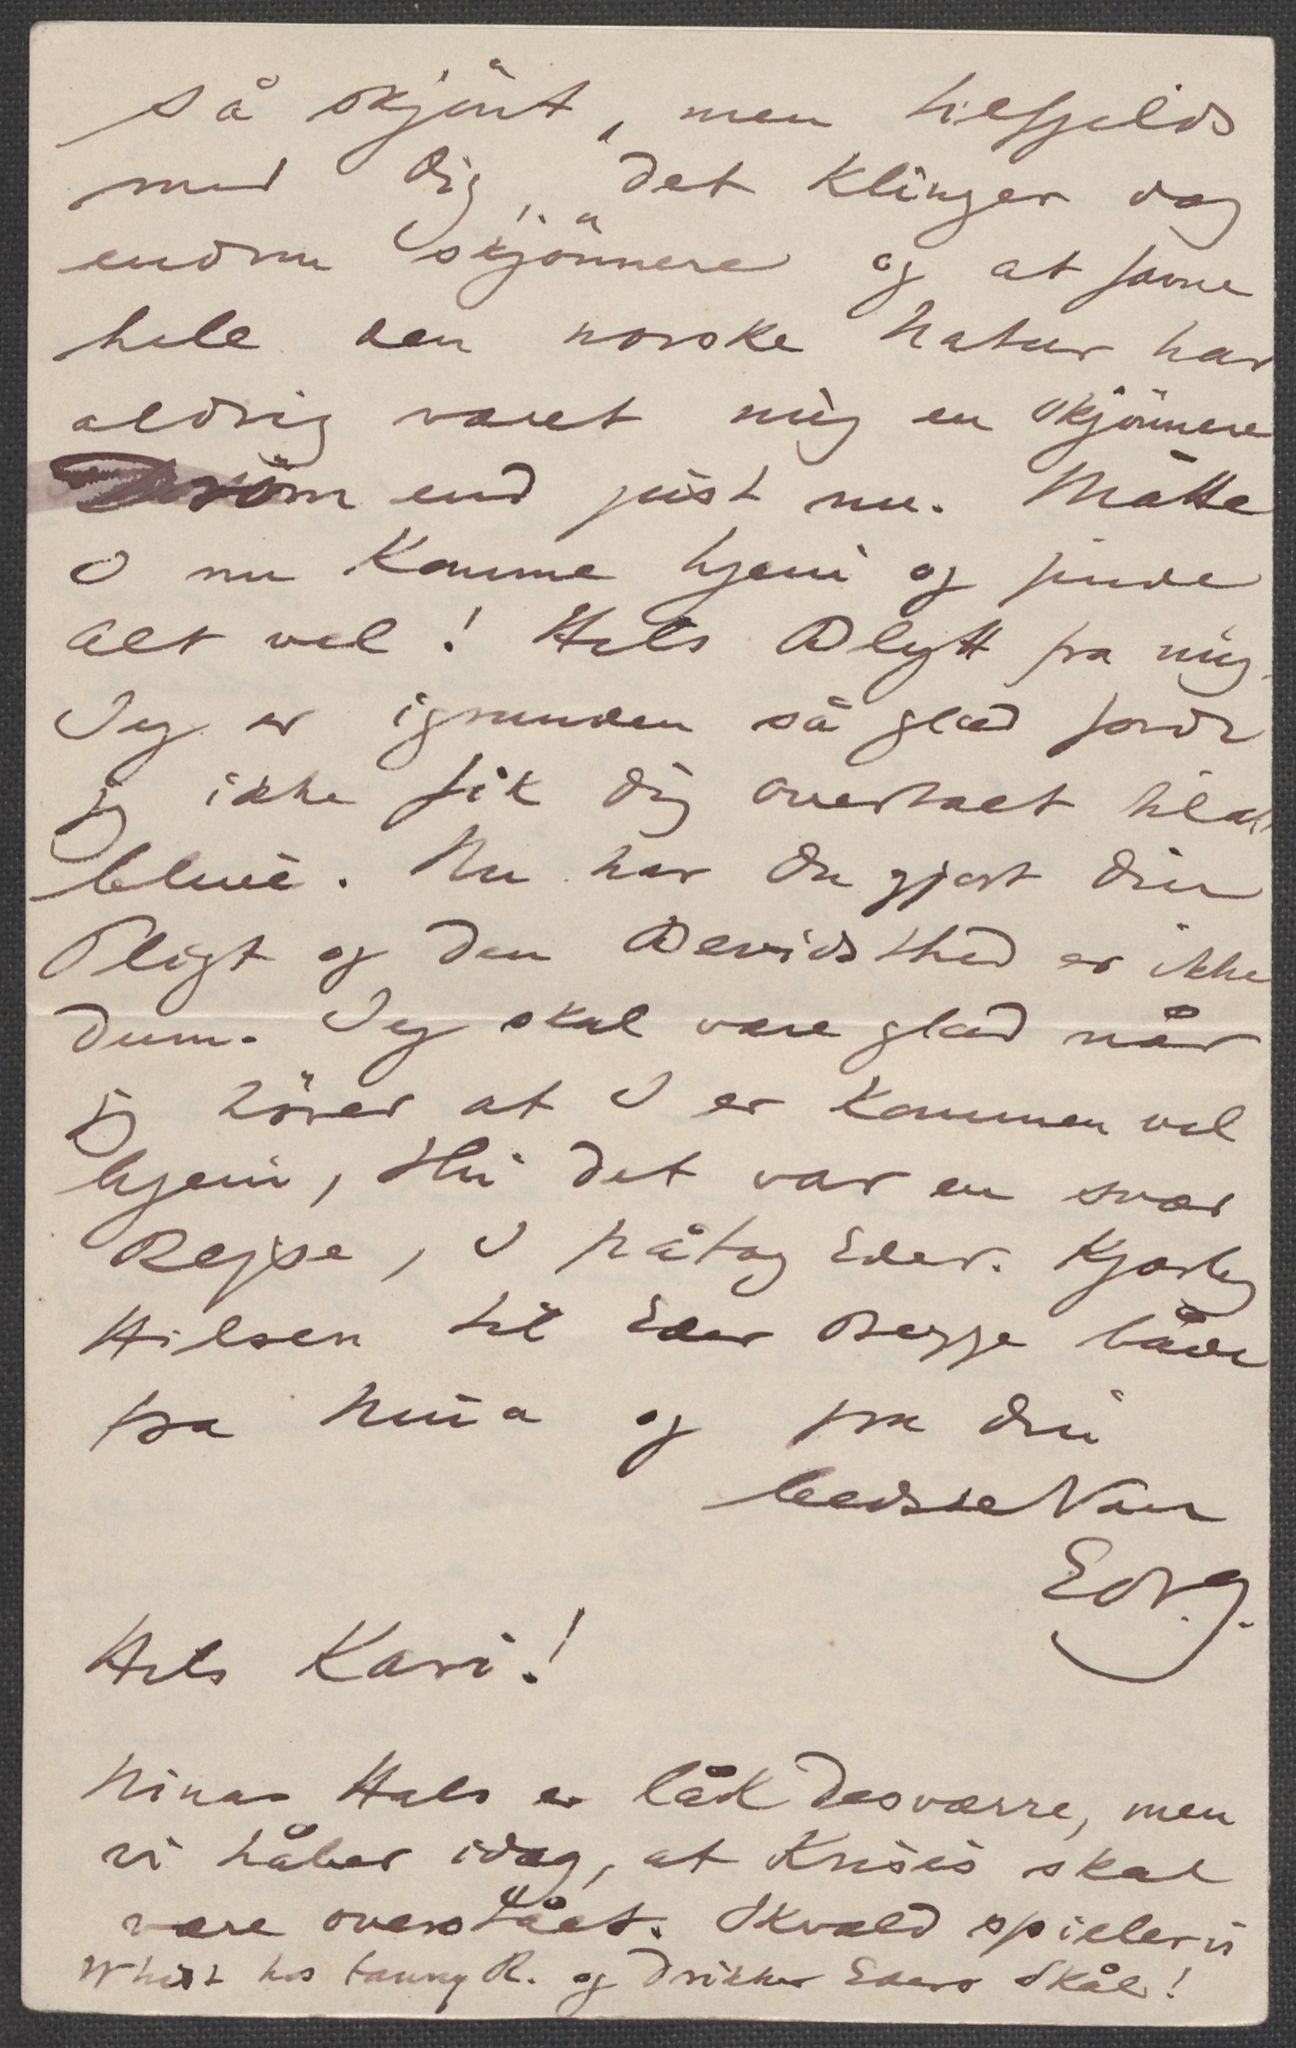 så skjönt, men tilfjelds
med Dig, det klinger dog
endnu skjönnere og at favne
hele den norske Natur har
aldrig været mig en skjönnere
Dröm end just nu. Måtte
I nu komme hjem og finde
alt vel! Hils Blytt fra mig.
Jeg er igrunden så glad fordi
jeg ikke fik dig overtalt til at
blive. Nu har Du gjort din
Pligt og den Bevidsthed er ikke
dum. Jeg skal være glad når
jeg hörer at I er kommen vel
hjem, thi det var en svær
Rejse, I påtog Eder. Kjærlig
Hilsen til Eder Begge både
fra Nina og fra din
bedste Ven
Edv. G.
Hils Kari!
Ninas Hals er låk desværre, men
vi håber idag, at Krisis skal
være overstået. Ikvæld spiller vi
Whist hos Fanny R. og drikker Eders Skål!